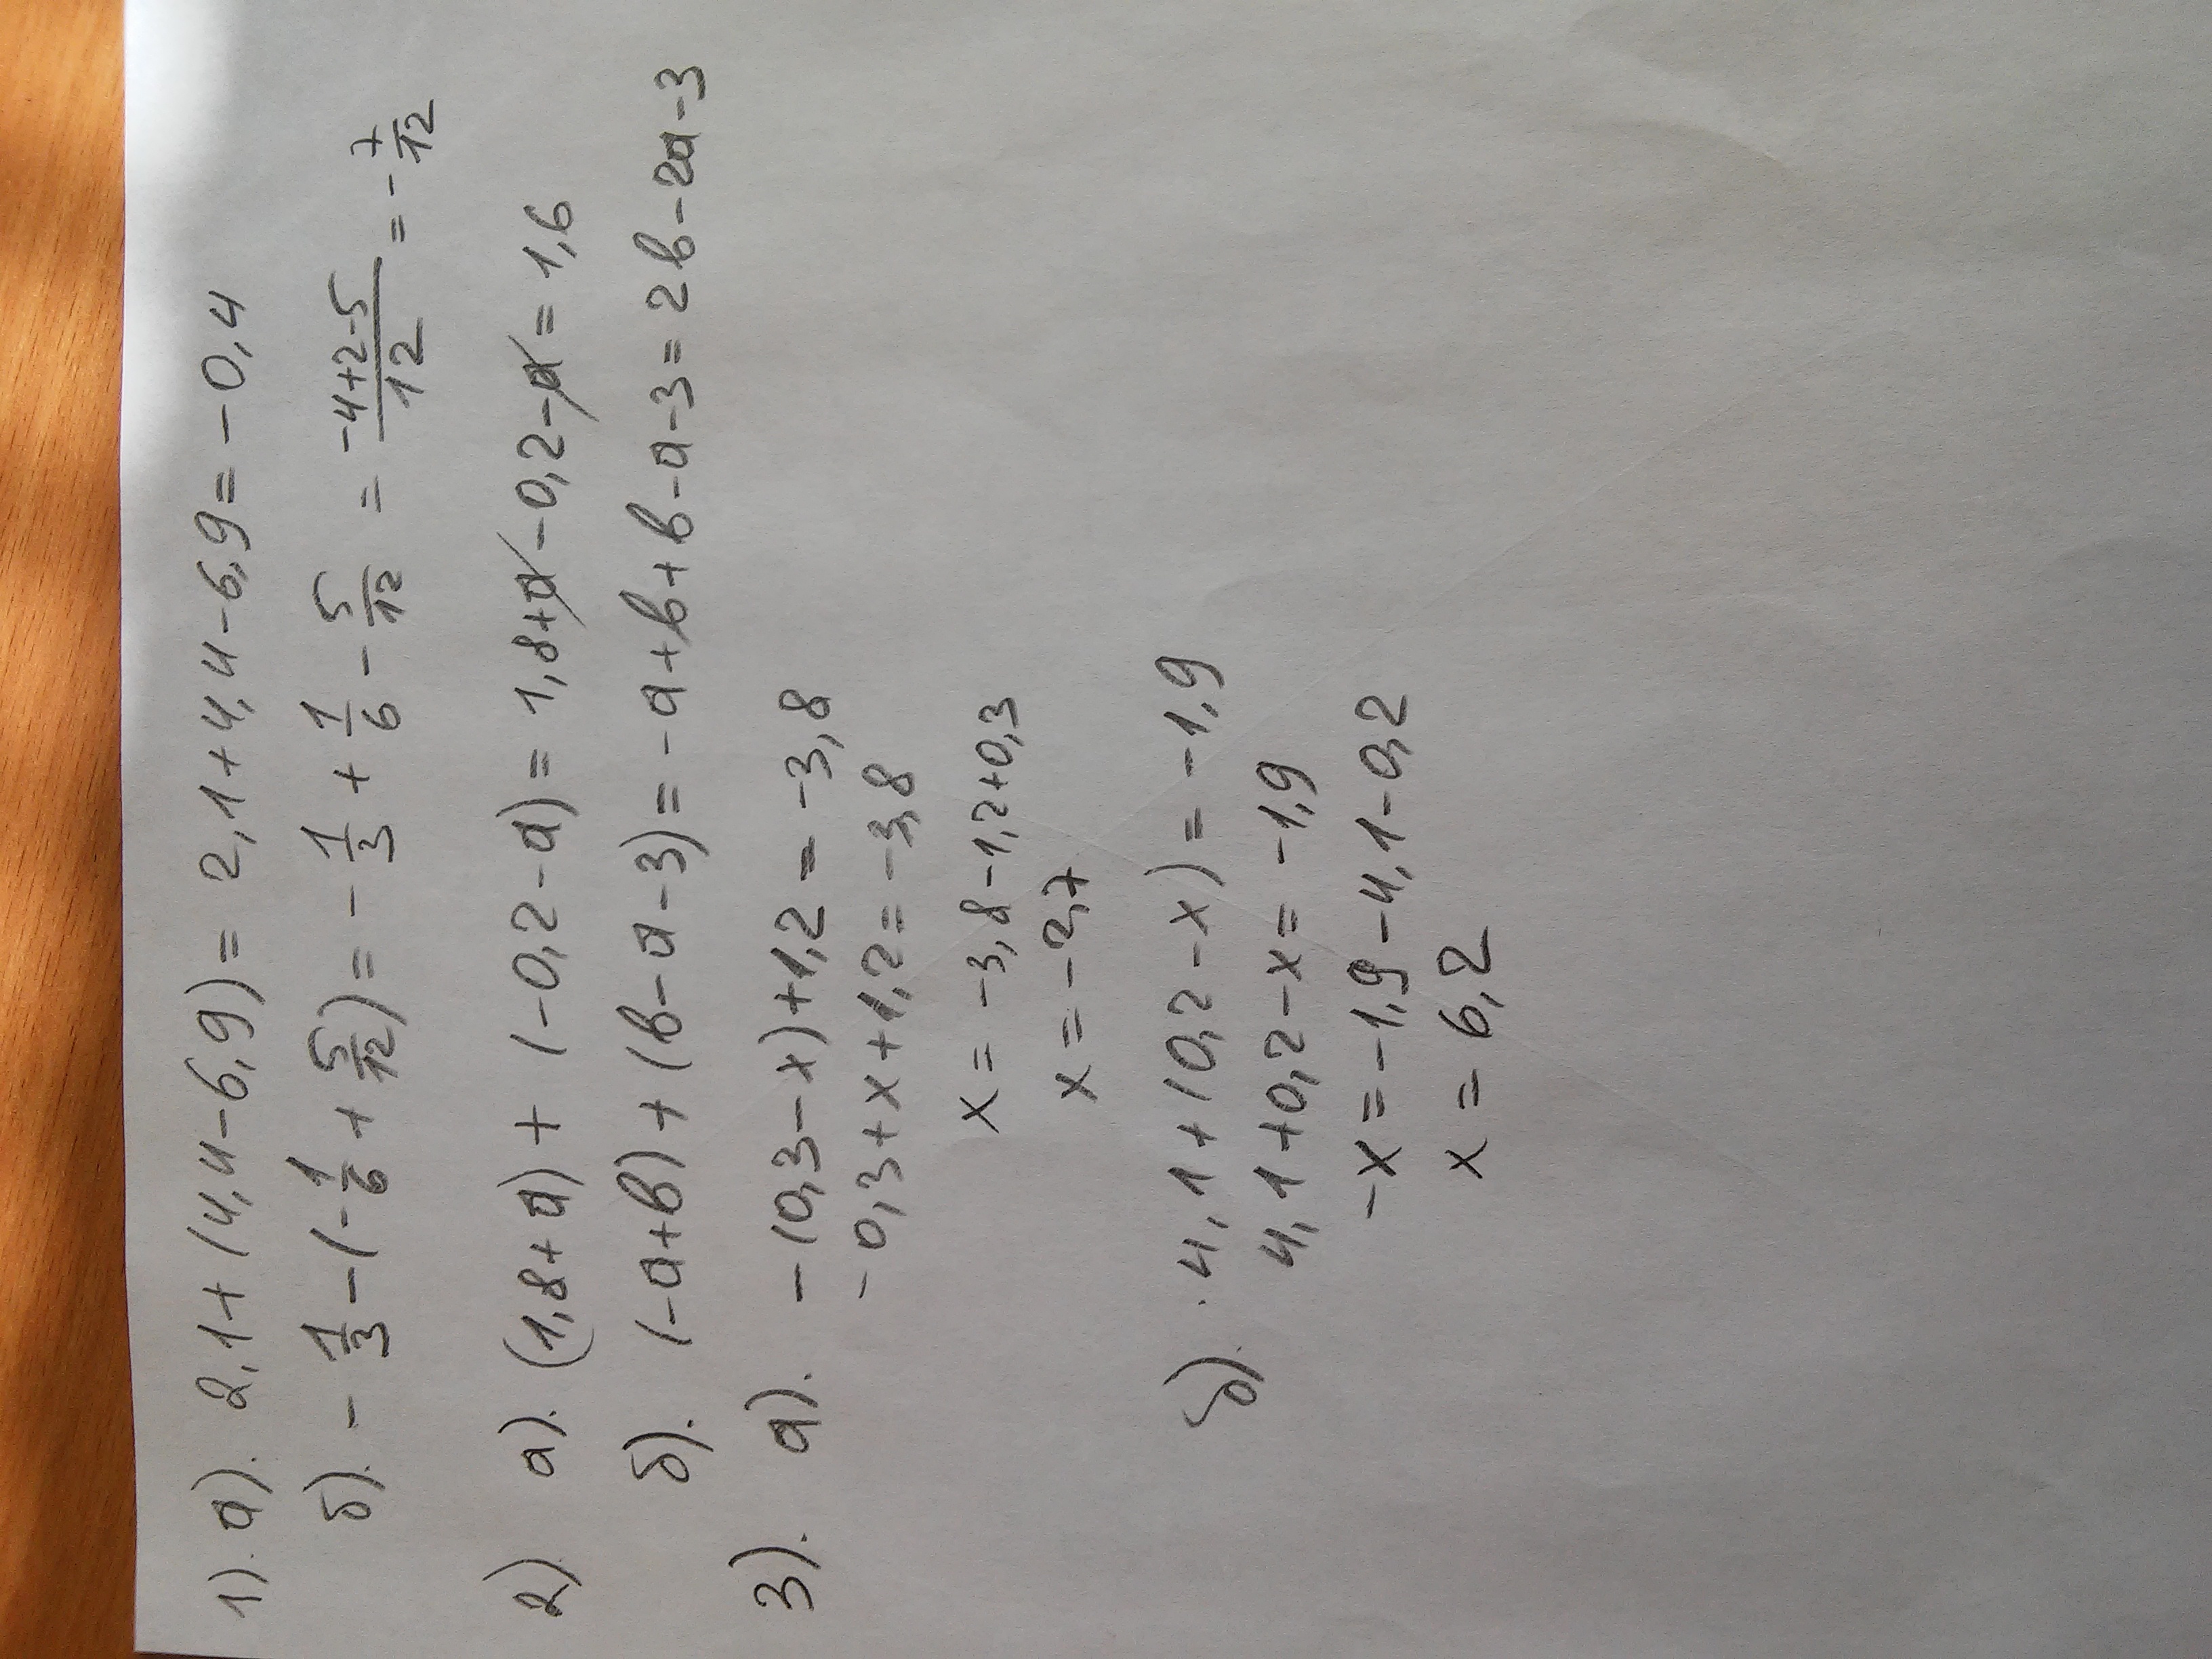 1). а). 2,1+(4,4-6,9)= 2,1+4,4-6,9=-0,4
б). -1/3-(-1/6+5/12)=-1/3+1/6-5/12=(-4+2-5)/12=-7/12
2) а). (1,8+а)+(-0,2-а)=1,8+а-0,2-а=1,6
б). (-а+в)+(в-а-3)=-а+в+в-а-3=2в-2а-3
3). а). -(0,3-х)+1,2=-3,8
-0,3+х+1,2=-3,8
х=-3,8-1,2+0,3
х=-2,7
б). 4,1+(0,2-х)=-1,9
4,1+0,2-х=-1,9
-х=-1,9-4,1-0,2
х=6,2